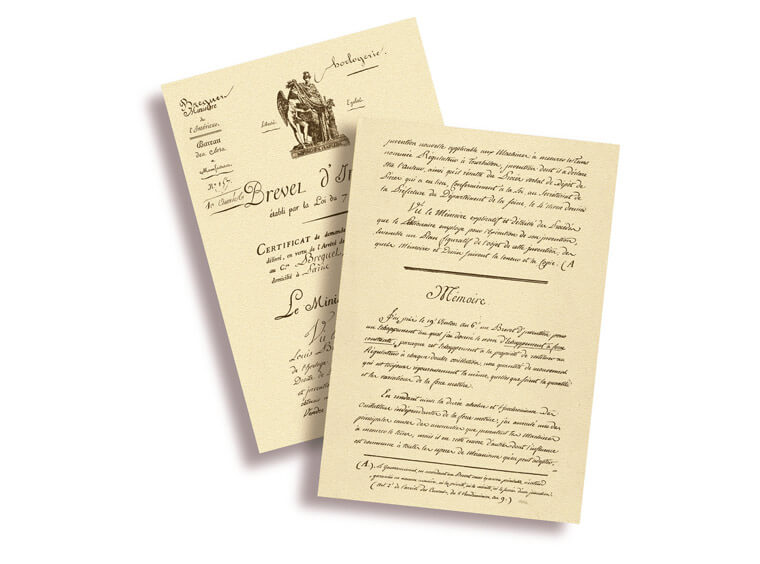 Breguet
Ministre
de
l'Intérieur
Bureau
des Arts
et
Manufactures
N.° 157
Horlogerie.
Liberté
Egalité
Brevet d'In
établi par la Loi du 7
CERTIFICAT de demande
délivré, en vertu de l'Arrêté de
au C.en Breguet
domicilié à Paris
Le Minis
Vu
Louis B
de l'horloge
invention nouvelle applicable aux Machines à mesurer le Tems
nommée Régulateur à Tourbillon, invention dont il a déclaré
être l'auteur, ainsi qu'il résulte du Procès verbal de Dépôt de
Pièces qui a eu lieu, Conformément à la Loi, au Secrétariat de
la Préfecture du Département de la Seine, le 4
Vu le Mémoire explicatif et détaillé des Procédés
que le Pétitionnaire employe pour l'exécution de son invention,
ensemble un Plan figuratif de l'objet de cette invention, des
quels Mémoires et Dessin suivent la teneur et la Copie. (A
Mémoire
J'ai pris le 19 Ventose an 6.e un Brevet d'invention pour
un échappement auquel j'ai donné le nom d'échappement à force
constante, parceque cet échappement a la propriété de restituer au
Régulateur à chaque double oscillation, une quantité de mouvement
qui est toujours rigoureusement la même, quelles que soient la quantité
et les variations de la force motrice.
En rendant ainsi la durée absolue et l'isochronisme des
Oscillations indépendantes de la force motrice, j'ai annulé une des
principales causes des anomalies que présentent les Machines
à mesurer le tems, mais il en reste encore d'autres dont l'influence
est commune à toutes les espèces de Mécanismes qu'on peut adapter,
(A). Le Gouvernement, en accordant un Brevet sans examen préalable, n'entend
garantir en aucune manière, ni la priorité, ni le mérite, ni le succès d'une invention.
(Art 2.e de l'arrêté des Consuls, du 5 Vendémiaire, an 9.)